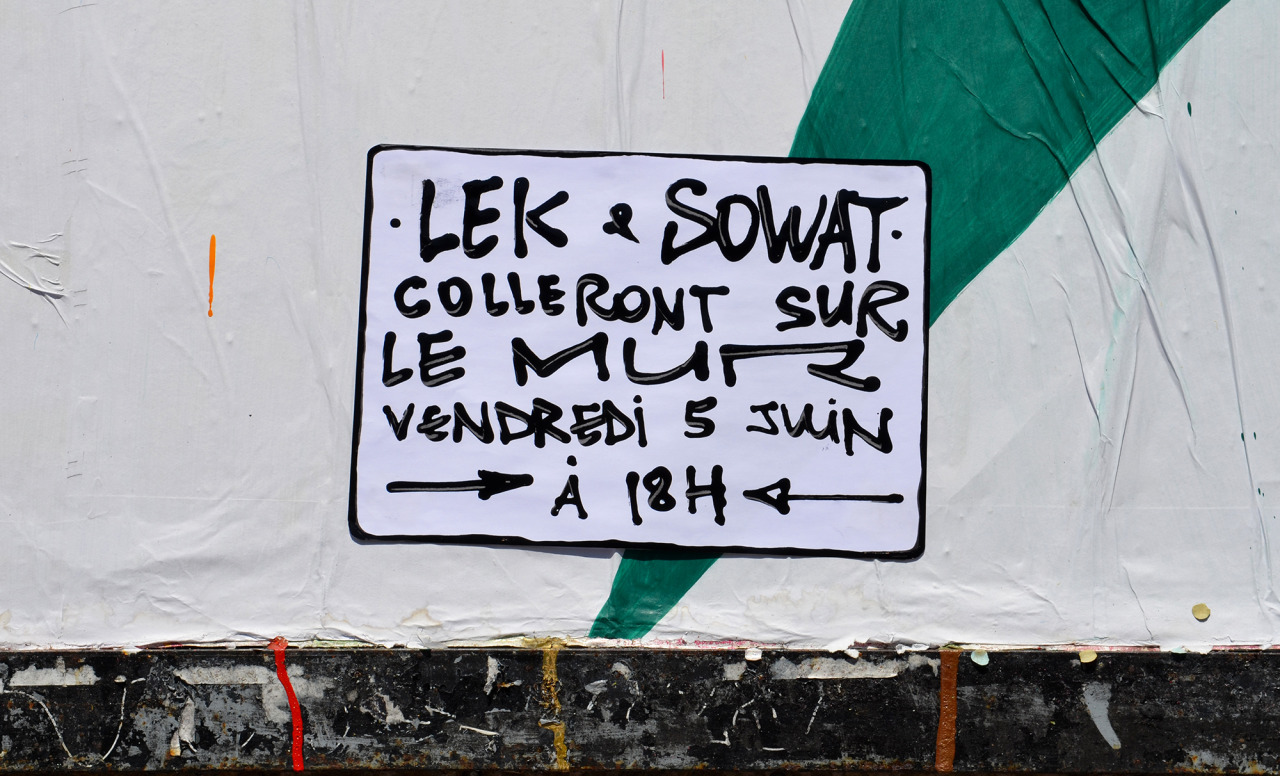 · LEK & SOWAT ·
COLLERONT SUR
LE MUR
VENDREDi 5 JUiN
→ À 18H ←